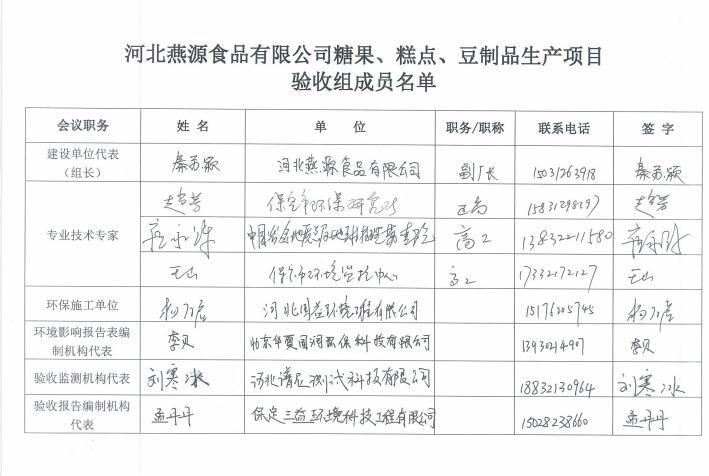 河北燕源食品有限公司糖果、糕点、豆制品生产项目
验收组成员名单
会议职务 姓 名 单 位 职务/职称 联系电话 签 字
建设单位代表
（组长） 秦苏颖 河北燕源食品有限公司 副厂长 15031263918 秦苏颖
保定市环保研究所 正高 15831298197
专业技术专家 高工 13832211580
王山 保定市环境监控中心 高工 17332172127 王山
环保施工单位 河北国益环境工程有限公司 15176205745
环境影响报告表编
制机构代表 李贝 北京华夏国润环保科技有限公司 李贝
验收监测机构代表 刘寒冰 河北谱尼测试科技有限公司 18832130964 刘寒冰
验收报告编制机构
代表 孟丹丹 保定三益环境科技工程有限公司 15028238660 孟丹丹